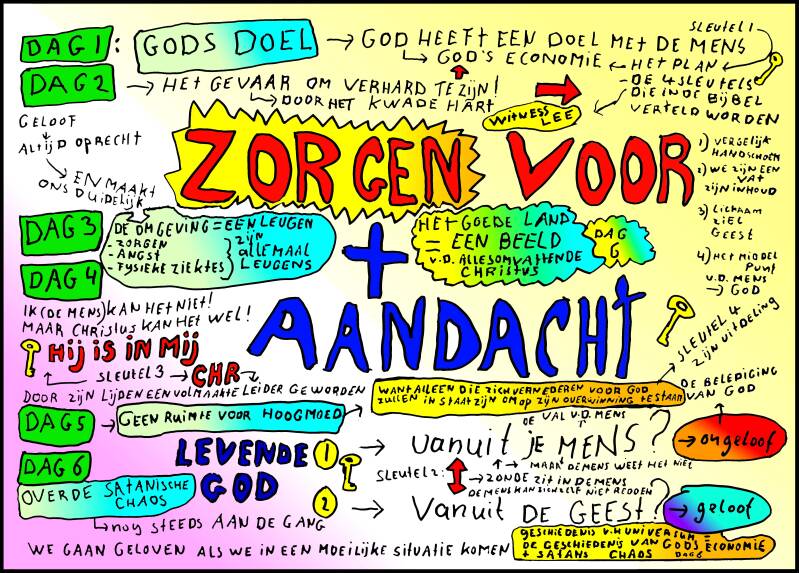 SLEUTEL 1
DAG 1 : GODS DOEL → GOD HEEFT EEN DOEL MET DE MENS
GOD'S ECONOMIE ← HET PLAN
DAG 2 → HET GEVAAR OM VERHARD TE ZIJN!
DOOR HET KWADE HART
- DE 4 SLEUTELS
DIE IN DE BIJBEL
VERTELD WORDEN
WITNESS
LEE
GELOOF
ALTIJD OPRECHT
→ EN MAAKT
ONS DUIDELIJK
ZORGEN VOOR
+
AANDACHT
1) VERGELIJK
HANDSCHOEN
2) WE ZIJN EEN
VAT
ZIJN INHOUD
3) LICHAAM
ZIEL
GEEST
4) HET MIDDEL
PUNT
V.D. MENS
→ GOD
DAG 3
DE OMGEVING = EEN LEUGEN
- ZORGEN
- ANGST
- FYSIEKE ZIEKTES
ZIJN
ALLEMAAL
LEUGENS
HET GOEDE LAND
= EEN BEELD
V.D. ALLESOMVATTENDE
CHRISTUS
DAG
6
DAG 4
IK (DE MENS) KAN HET NIET!
MAAR CHRISTUS KAN HET WEL!
HIJ IS IN MIJ
SLEUTEL 3 → CHR
DOOR ZIJN LIJDEN EEN VOLMAAKTE LEIDER GEWORDEN
SLEUTEL 4
ZIJN UITDELING
DAG 5 → GEEN RUIMTE VOOR HOOGMOED
WANT ALLEEN DIE ZICH VERNEDEREN VOOR GOD
ZULLEN IN STAAT ZIJN OM OP ZIJN OVERWINNING TE STAAN
DE BELEDIGING
VAN GOD
DE VAL V.D. MENS
LEVENDE
GOD
1 → vanuit je MENS? → ongeloof
SLEUTEL 2:
→ MAAR DE MENS WEET HET NIET
→ ZONDE ZIT IN DE MENS
DE MENS KAN ZICHZELF NIET REDDEN
2 → Vanuit DE GEEST? → geloof
DAG 6
OVER DE SATANISCHE
CHAOS
→ nog STEEDS AAN DE GANG
WE GAAN GELOVEN ALS WE IN EEN MOEILIJKE SITUATIE KOMEN
GESCHIEDENIS V.H UNIVERSUM =
DE GESCHIEDENIS VAN GODS ECONOMIE
+ SATANS CHAOS DAG 6